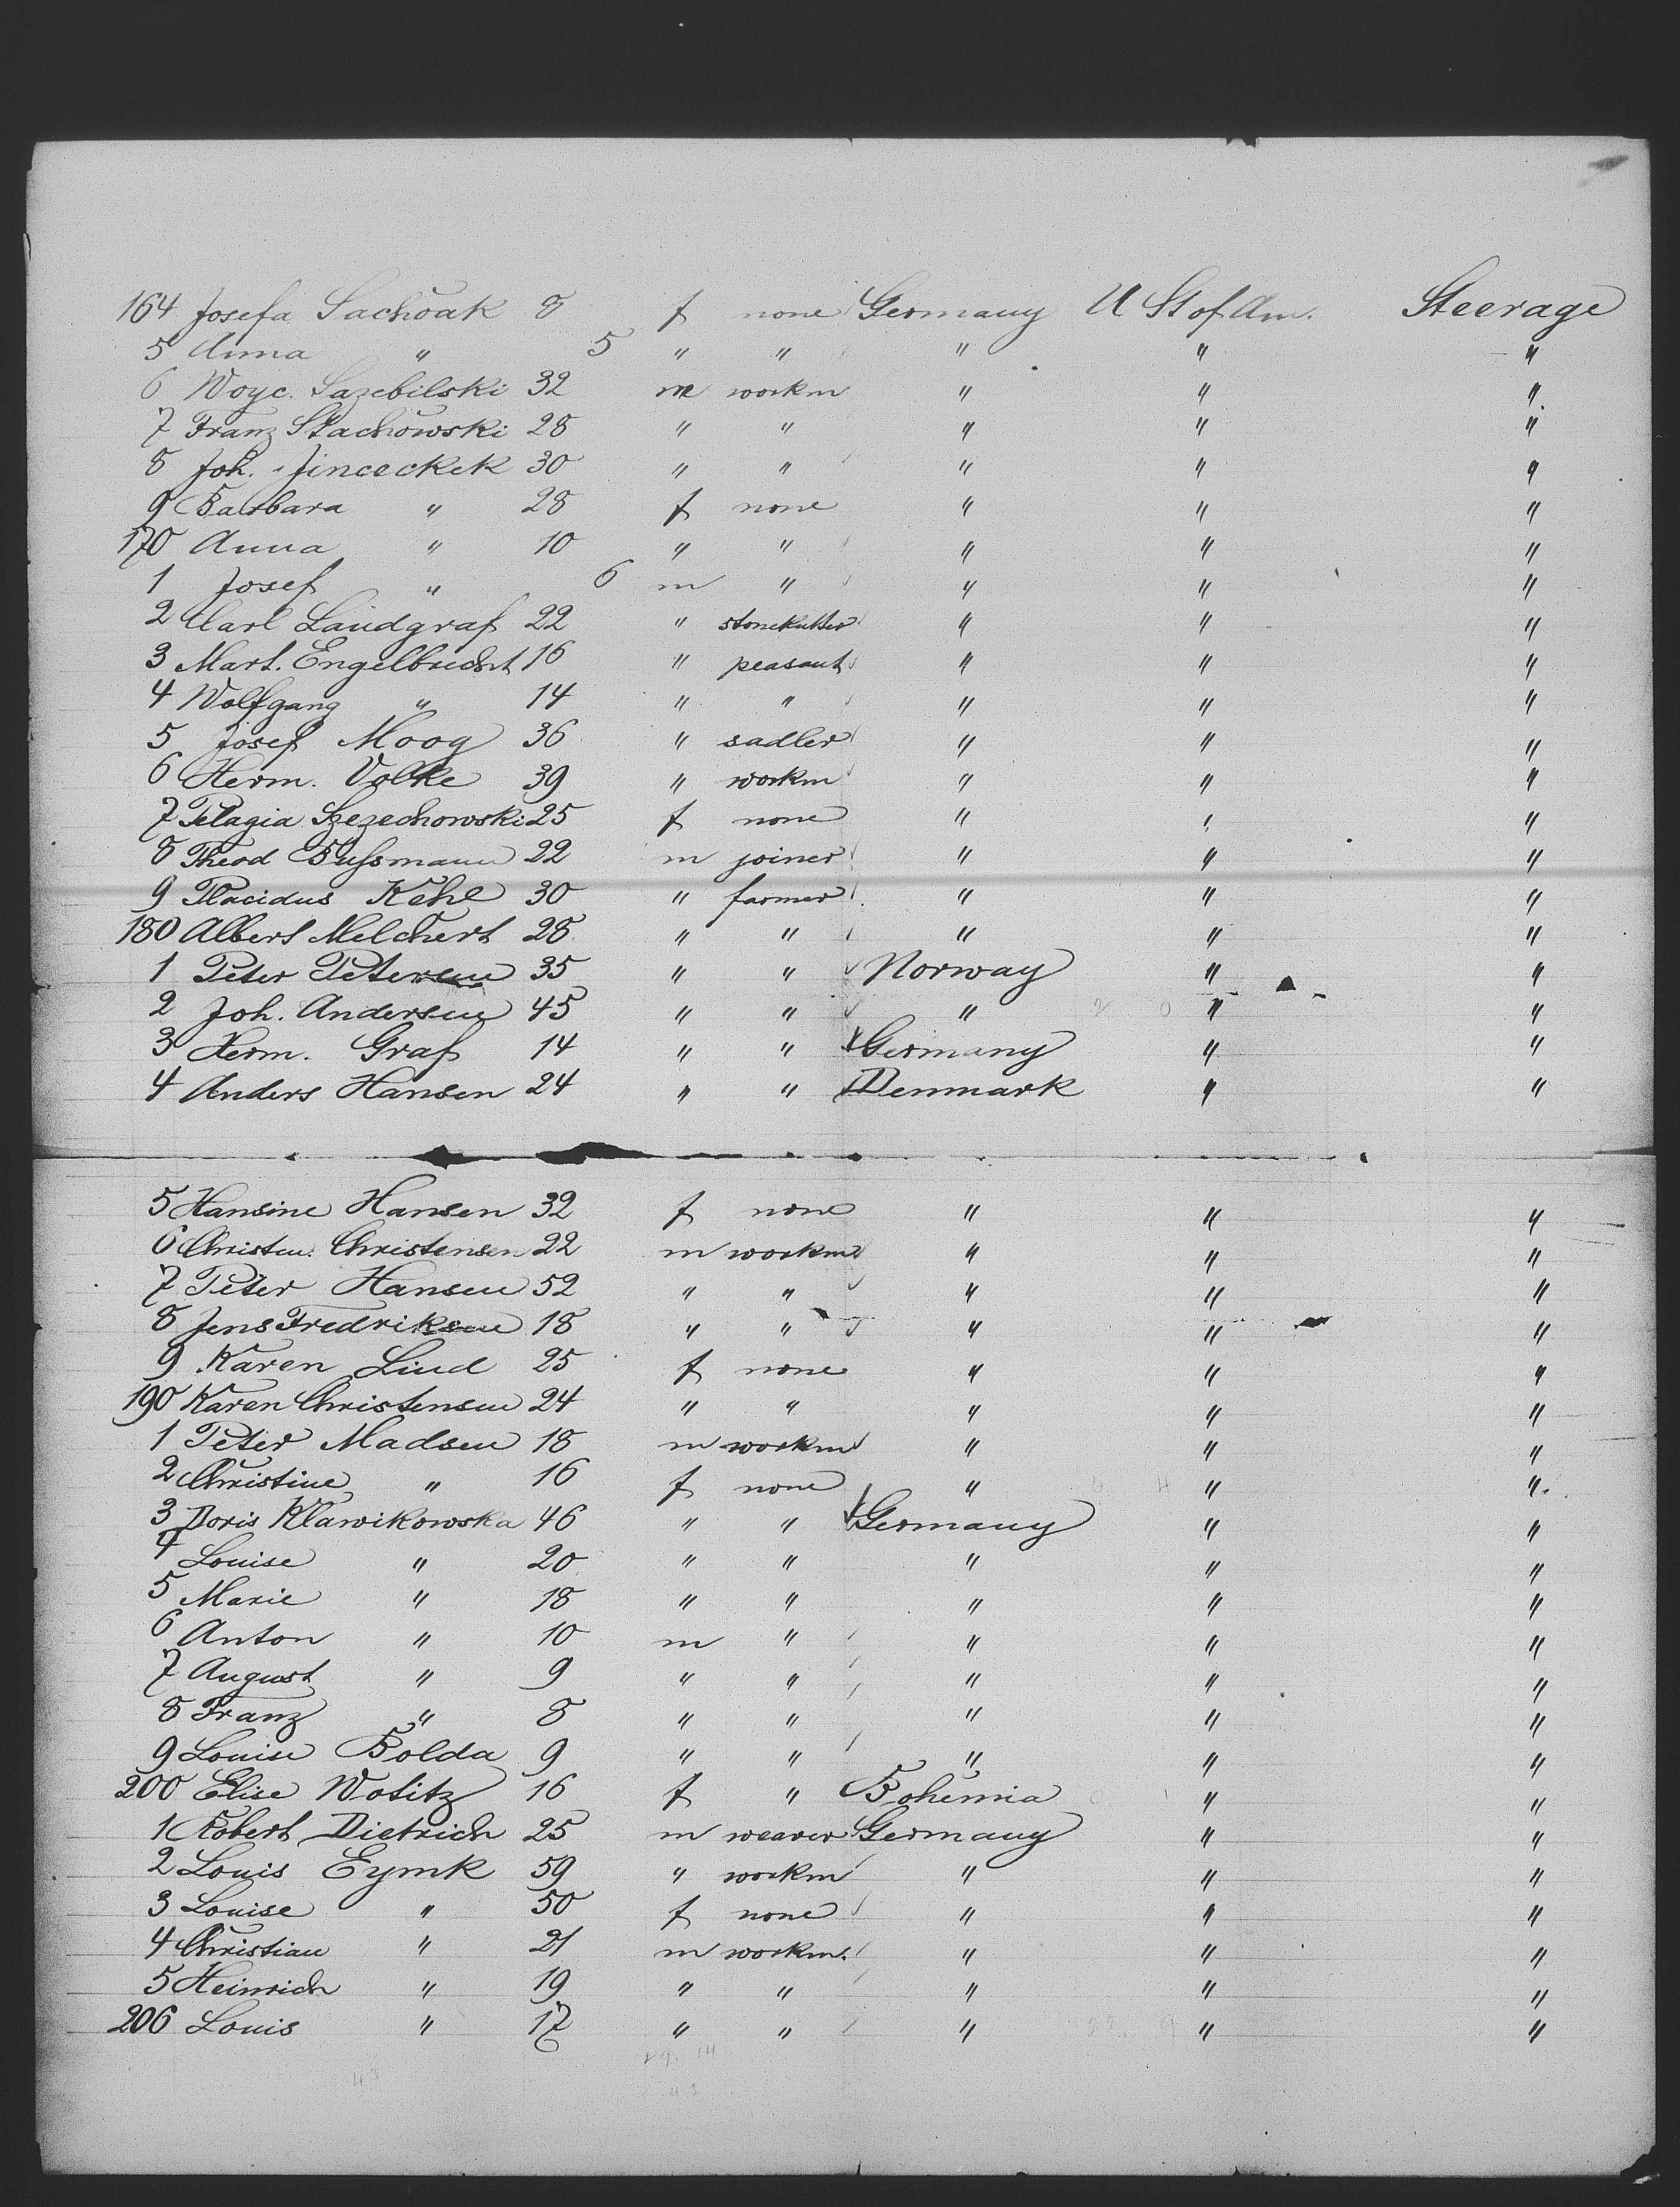 164 Josefa Sachoak 8 f none Germany U St of Am. Steerage
5 Anna " 5 " " " " "
6 Woyc. Sazebilski 32 m workm " " "
7 Franz Stachowski 28 " " " " "
8 Joh. Jinceckek 30 " " " " "
9 Barbara " 28 f none " " "
170 Anna " 10 " " " " "
1 Josef " 6 m " " " "
2 Carl Landgraf 22 " stonekutter " " "
3 Mart. Engelbrecht 16 " peasant " " "
4 Wolfgang " 14 " " " " "
5 Josef Moog 36 " sadler " " "
6 Herm. Volke 39 " workm " " "
7 Pelagia Szezechowski 25 f none " " "
8 Theod Bussmann 22 m joiner " " "
9 Placidus Kehl 30 " farmer " " "
180 Albert Melchert 28 " " " " "
1 Peter Petersen 35 " " Norway " "
2 Joh. Andersen 45 " " " " "
3 Herm. Graf 14 " " Germany " "
4 Anders Hansen 24 " " Denmark " "
5 Hansine Hansen 32 f none " " "
6 Christen. Christensen 22 m workm " " "
7 Peter Hansen 52 " " " " "
8 Jens Fredriksen 18 " " " " "
9 Karen Lind 25 f none " " "
190 Karen Christensen 24 " " " " "
1 Peter Madsen 18 m workm " " "
2 Christine " 16 f none " " "
3 Doris Klawikowska 46 " " Germany " "
4 Louise " 20 " " " " "
5 Marie " 18 " " " " "
6 Anton " 10 m " " " "
7 August " 9 " " " " "
8 Franz " 8 " " " " "
9 Louise Bolda 9 " " " " "
200 Elise Wotitz 16 f " Bohemia " "
1 Robert Dietrich 25 m weaver Germany " "
2 Louis Eymk 59 " workm " " "
3 Louise " 50 f none " " "
4 Christian " 21 m workm. " " "
5 Heinrich " 19 " " " " "
206 Louis " 17 " " " " "